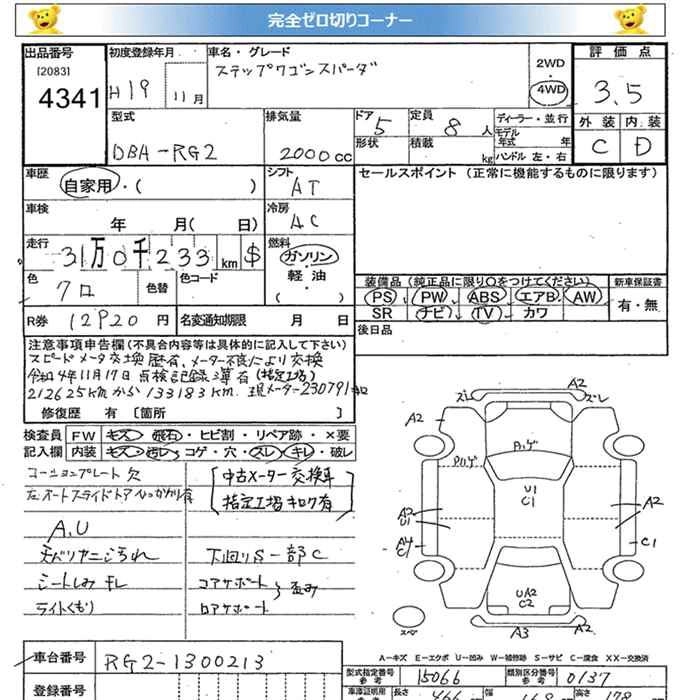 完全ゼロ切りコーナー
出品番号 初度登録年月 車名・グレード 評価点
[2083] ステップワゴンスパーダ 2WD
4341 H19 11月 4WD 3.5
型式 排気量 ドア 定員 ディーラー・並行 外装 内装
DBA-RG2 2000cc 5 8人 モデル年式 年 C D
形状 積載 kg ハンドル 左・右
車歴 シフト セールスポイント (正常に機能するものに限ります)
自家用・( ) AT
車検 冷房
年 月( 日) AC
走行 燃料
31万0千233km $ ガソリン
色 色替 色コード 軽・油
クロ ( )
装備品 (純正品に限り○をつけてください) 新車保証書
PS PW ABS エアB AW 有・無
SR ナビ TV カワ
R券 12920円 名変通知期限 月 日 後日品
注意事項申告欄(不具合内容等は具体的に記入して下さい)
スピードメータ交換歴有、メーター不良により交換
令和4年11月17日 点検記録簿有(指定工場)
212625kmから133183km. 現メーター230791キロ
修復歴 有 [箇所 ]
検査員 FW キズ・飛石・ヒビ割・リペア跡・×要
記入欄 内装 キズ・汚レ・コゲ・穴・スレ・キレ・破レ
コーションプレート欠 [中古メーター交換車
左オートスライドドアひっかかり有 指定工場キロク有]
A,U
天ベリヤニこゴれ 下廻りS一部C
シートしみキレ コアサポート
ライトくもり ロアサポート 歪み
A2
ズレ ズレ
A2
Aハゲ
Pハゲ
U1
C1
A2
U1
A2
C1
C1
UA2
C2
A2
A3
スペヤ
A-キズ E-エクボ U-凹み W-補修跡 S-サビ C-腐食 XX-交換済
車台番号 RG2-1300213 型式指定番号 参考 15066 類別区分番号 参考 0137
登録番号 車庫証明用 長さ 466 幅 168 高さ 178